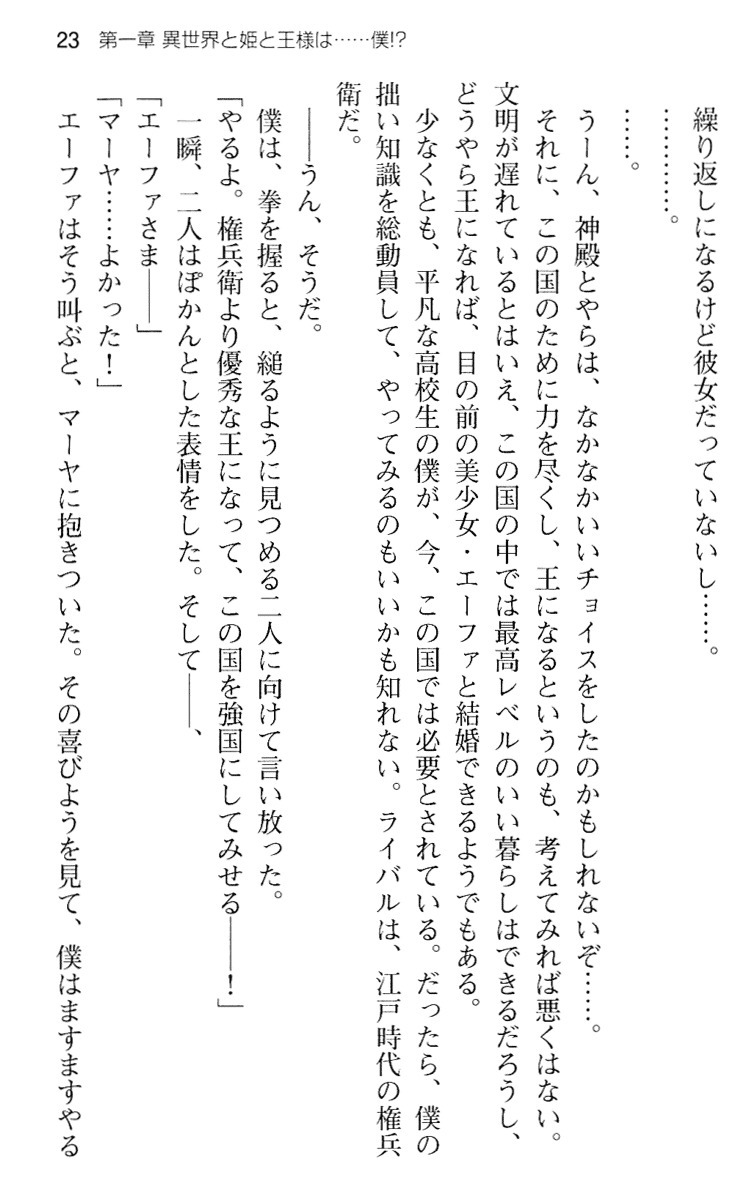 23 第一章 異世界と姫と王様は……僕!?
繰り返しになるけど彼女だっていないし……。
…………。
……。
うーん、神殿とやらは、なかなかいいチョイスをしたのかもしれないぞ……。
それに、この国のために力を尽くし、王になるというのも、考えてみれば悪くはない。
文明が遅れているとはいえ、この国の中では最高レベルのいい暮らしはできるだろうし、
どうやら王になれば、目の前の美少女・エーファと結婚できるようでもある。
少なくとも、平凡な高校生の僕が、今、この国では必要とされている。だったら、僕の
拙い知識を総動員して、やってみるのもいいかも知れない。ライバルは、江戸時代の権兵
衛だ。
――うん、そうだ。
僕は、拳を握ると、縋るように見つめる二人に向けて言い放った。
「やるよ。権兵衛より優秀な王になって、この国を強国にしてみせる――！」
一瞬、二人はぽかんとした表情をした。そして――、
「エーファさま――」
「マーヤ……よかった！」
エーファはそう叫ぶと、マーヤに抱きついた。その喜びようを見て、僕はますますやる